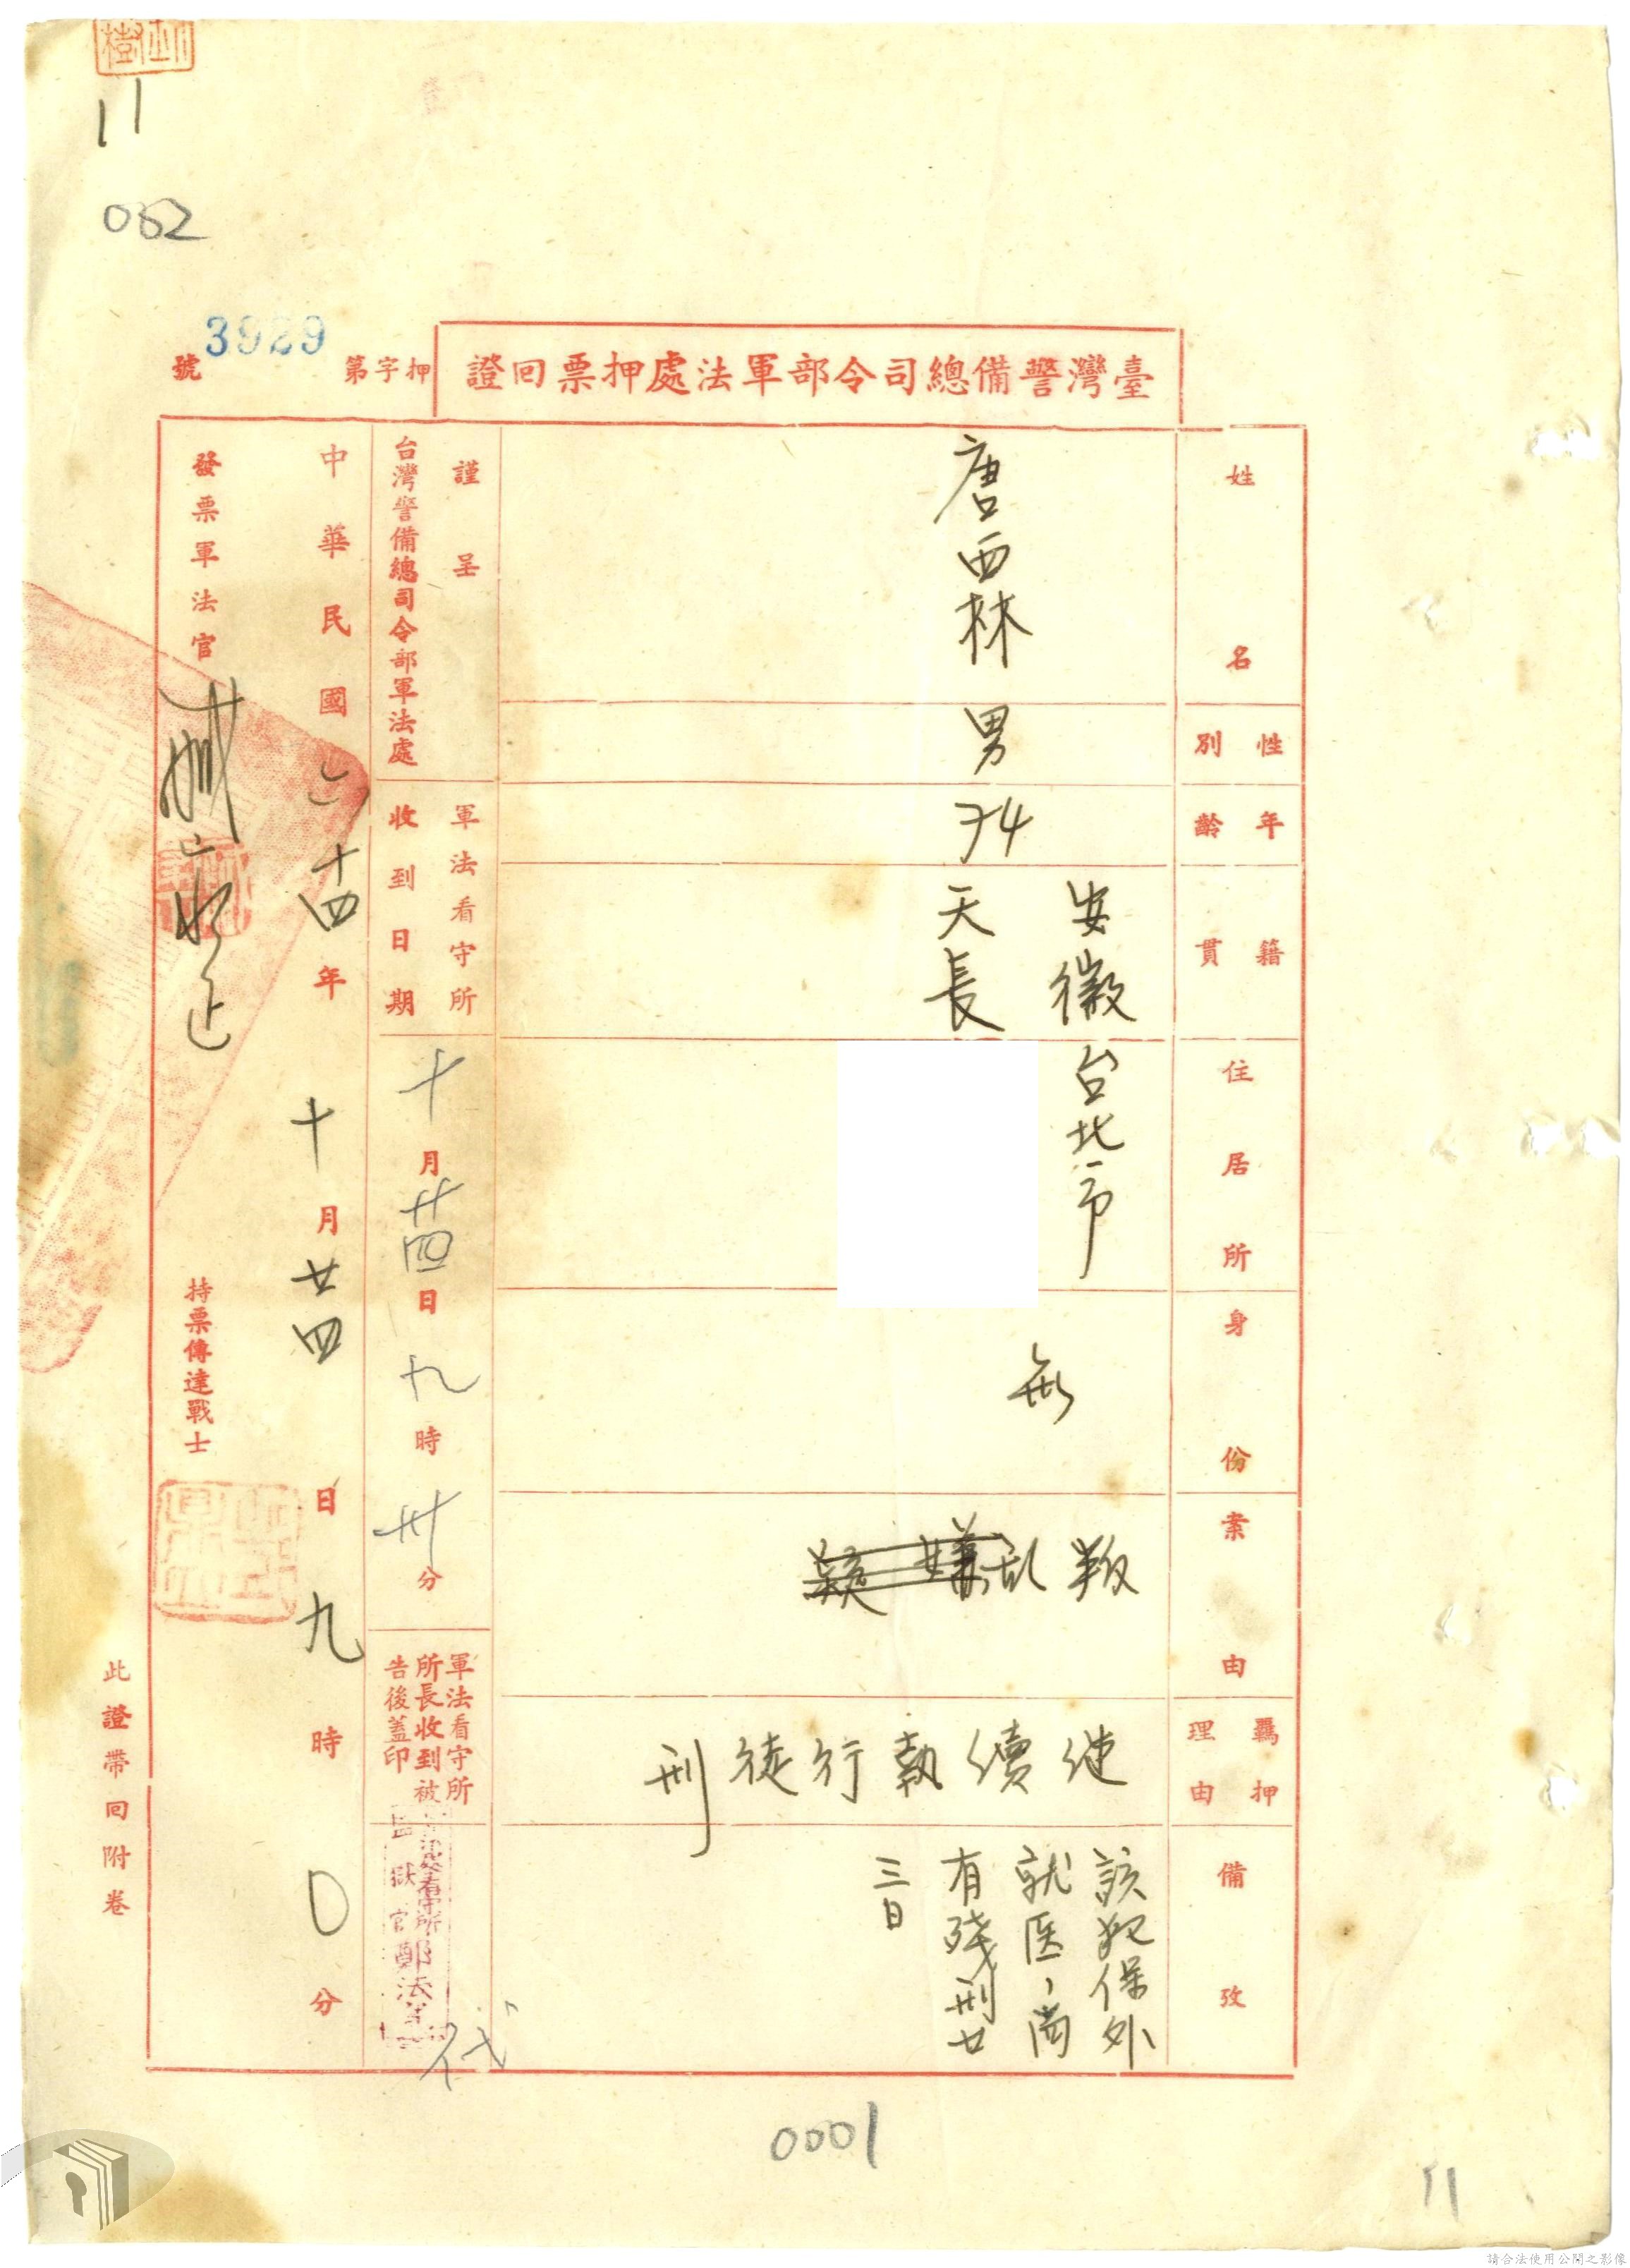 11
062
臺灣警備總司令部軍法處押票回證
押字第3929號
姓名
唐西林
性別
男
年齡
74
籍貫
安徽
天長
住居所
台北市
身份
無
案由
叛乱嫌疑
羈押理由
继續執行徒刑
備攷
該犯保外
就医,尚
有殘刑廿
三日
謹呈
台灣警備總司令部軍法處
軍法看守所
收到日期
十月廿四日十九時卅分
軍法看守所
所長收到被
告後蓋印
看守所
監獄官鄭法
代
中華民國六十四年十月廿四日九時0分
發票軍法官
持票傳達戰士
此證帶回附卷
0001
11
請合法使用公開之影像